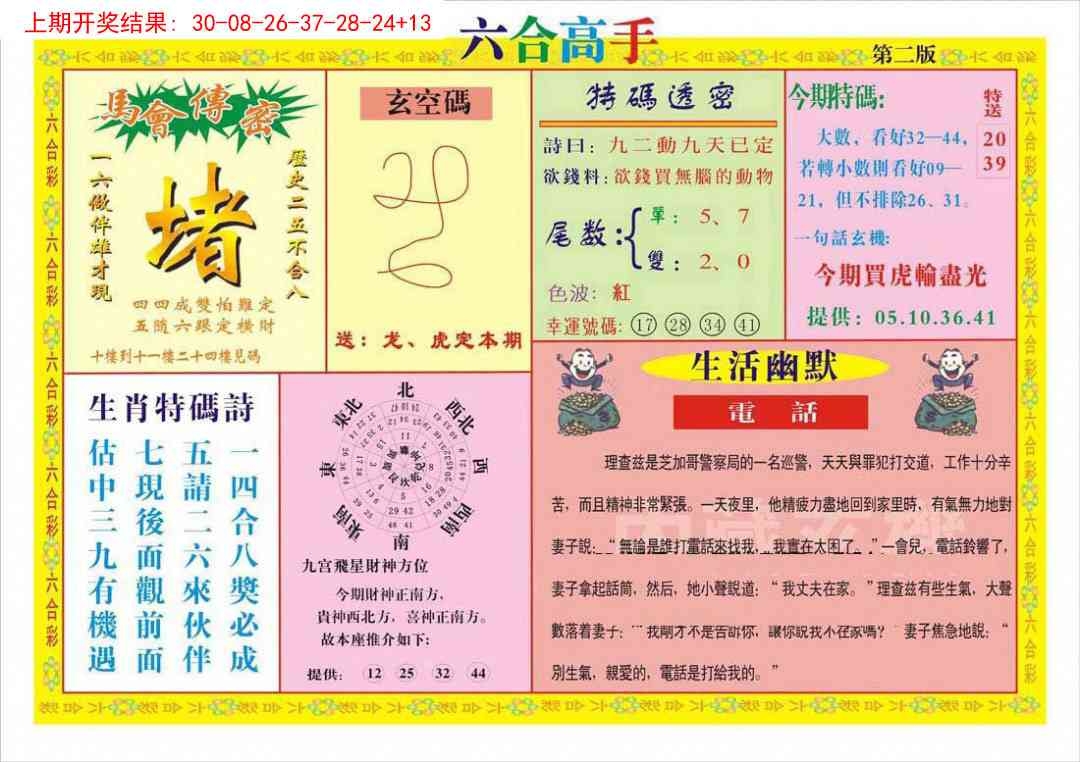 上期开奖结果: 30-08-26-37-28-24+13
六合高手
第二版
馬會傳密
歷史二五不合八
堵
一六做伴雄才現
四四成雙怕難定
五隨六跟定橫財
十樓到十一樓二十四樓見碼
玄空碼
送：龙、虎定本期
特碼透密
詩曰：九二動九天已定
欲錢料：欲錢買無腦的動物
尾数：
單：5、7
雙：2、0
色波：紅
幸運號碼：17 28 34 41
今期特碼:
特送
20
39
大數，看好32—44，
若轉小數則看好09—
21，但不排除26、31。
一句話玄機:
今期買虎輸盡光
提供：05.10.36.41
生肖特碼詩
一四合八獎必成
五請二六來伙伴
七現後面觀前面
估中三九有機遇
北
東北
西北
東
西
東南
西南
南
九宫飛星財神方位
今期財神正南方，
貴神西北方，喜神正南方。
故本座推介如下：
提供： 12 25 32 44
生活幽默
電 話
理查兹是芝加哥警察局的一名巡警，天天與罪犯打交道，工作十分辛
苦，而且精神非常緊張。一天夜里，他精疲力盡地回到家里時，有氣無力地對
妻子說：“無論是誰打電話來找我，我實在太困了。”一會兒，電話鈴響了，
妻子拿起話筒，然后，她小聲說道：“我丈夫在家。”理查兹有些生氣，大聲
數落着妻子：“我剛才不是告訴你，讓你說我不在家嗎？”妻子焦急地說：“
別生氣，親愛的，電話是打給我的。”